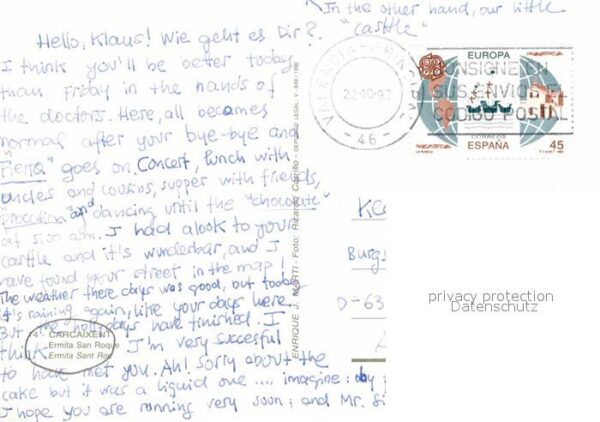 In the other hand, our little
"casttle"
Hello, Klaus! Wie geht es Dir?
I think you'll be better today
than Friday in the hands of
the doctors. Here, all becomes
normal after your bye-bye and
"Fiera" goes on. Concert, lunch with
uncles and cousins, supper with friends,
"procession" and dancing until the "chocolate"
at 5.00 a.m. I had a look to your
casttle and it's wunderbar, and I
have found your street in the map!
The weather there days was good, but today
it's raining again, like your days here.
But the holidays have finished. I
think I'm very succesful
to have met you. Ah! Sorry about the
cake but it was a liquid one .... imagine:
I hope you are running very soon; and Mr.
CARCAIXENT
Ermita San Roque
Ermita Sant
ENRIQUE J. MARTI - Foto: Ricardo
VALENCIA
22-10-92
- 46 -
CONSIGNE EN
SUS ENVIOS EL
CODIGO POSTAL
EUROPA
CORREOS
ESPAÑA 45
Burg
D-63
privacy protection
Datenschutz